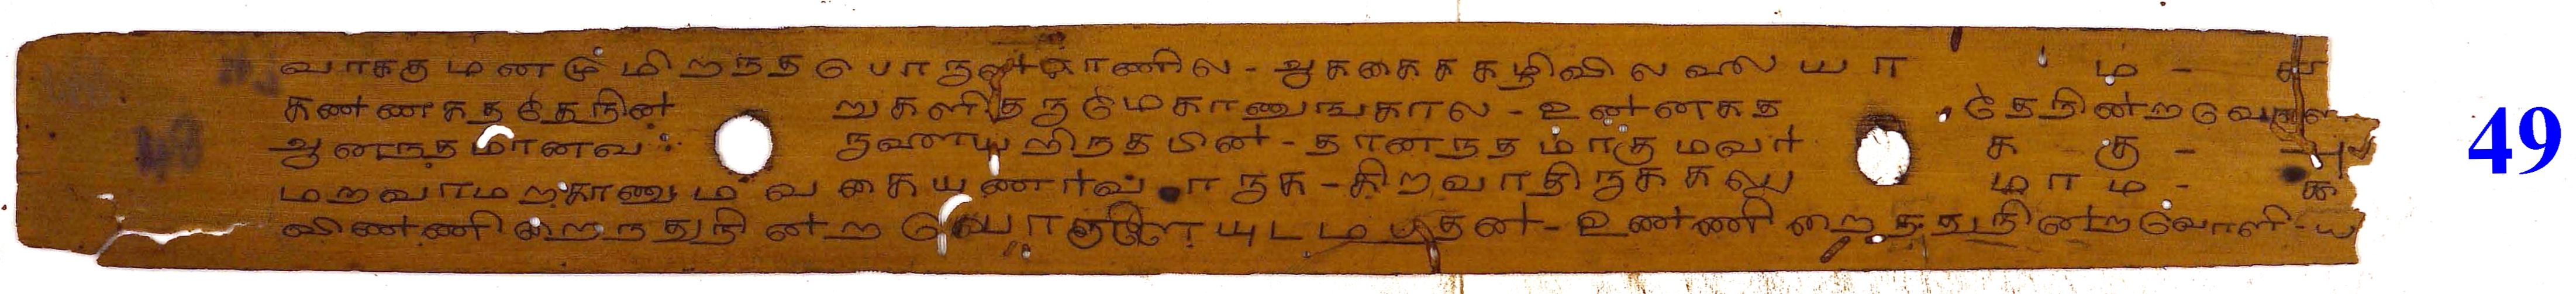 வாககுமனமுமிறநதபொருளகாணில - ஆககைககழிவிலலையாம -
கணணகததேநின றுகளிதருமேகாணுஙகால - உனனகத தேநினறவொளி
ஆனநதமானவ ருளையறிநதபின - தானநதமாகுமவர ககு -
மறவாமறகாணுமவகையுணரவாருக - கிறவாதிருககலு மாம -
விணணிறைநதுநினற பொருளேயுடமபுதன - உணணிறைநதுநினறவொளி - ய
49